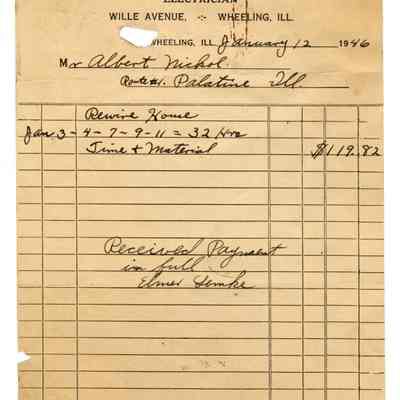 ELECTRICIAN
WILLE AVENUE, WHEELING, ILL.
WHEELING, ILL. January 12 1946
Mr Albert Nichol
Route #1. Palatine Ill.
Rewire House
Jan 3 - 4 - 7 - 9 - 11 = 32 Hrs
Time & Material $119.82
Received Payment
in full
Elmer